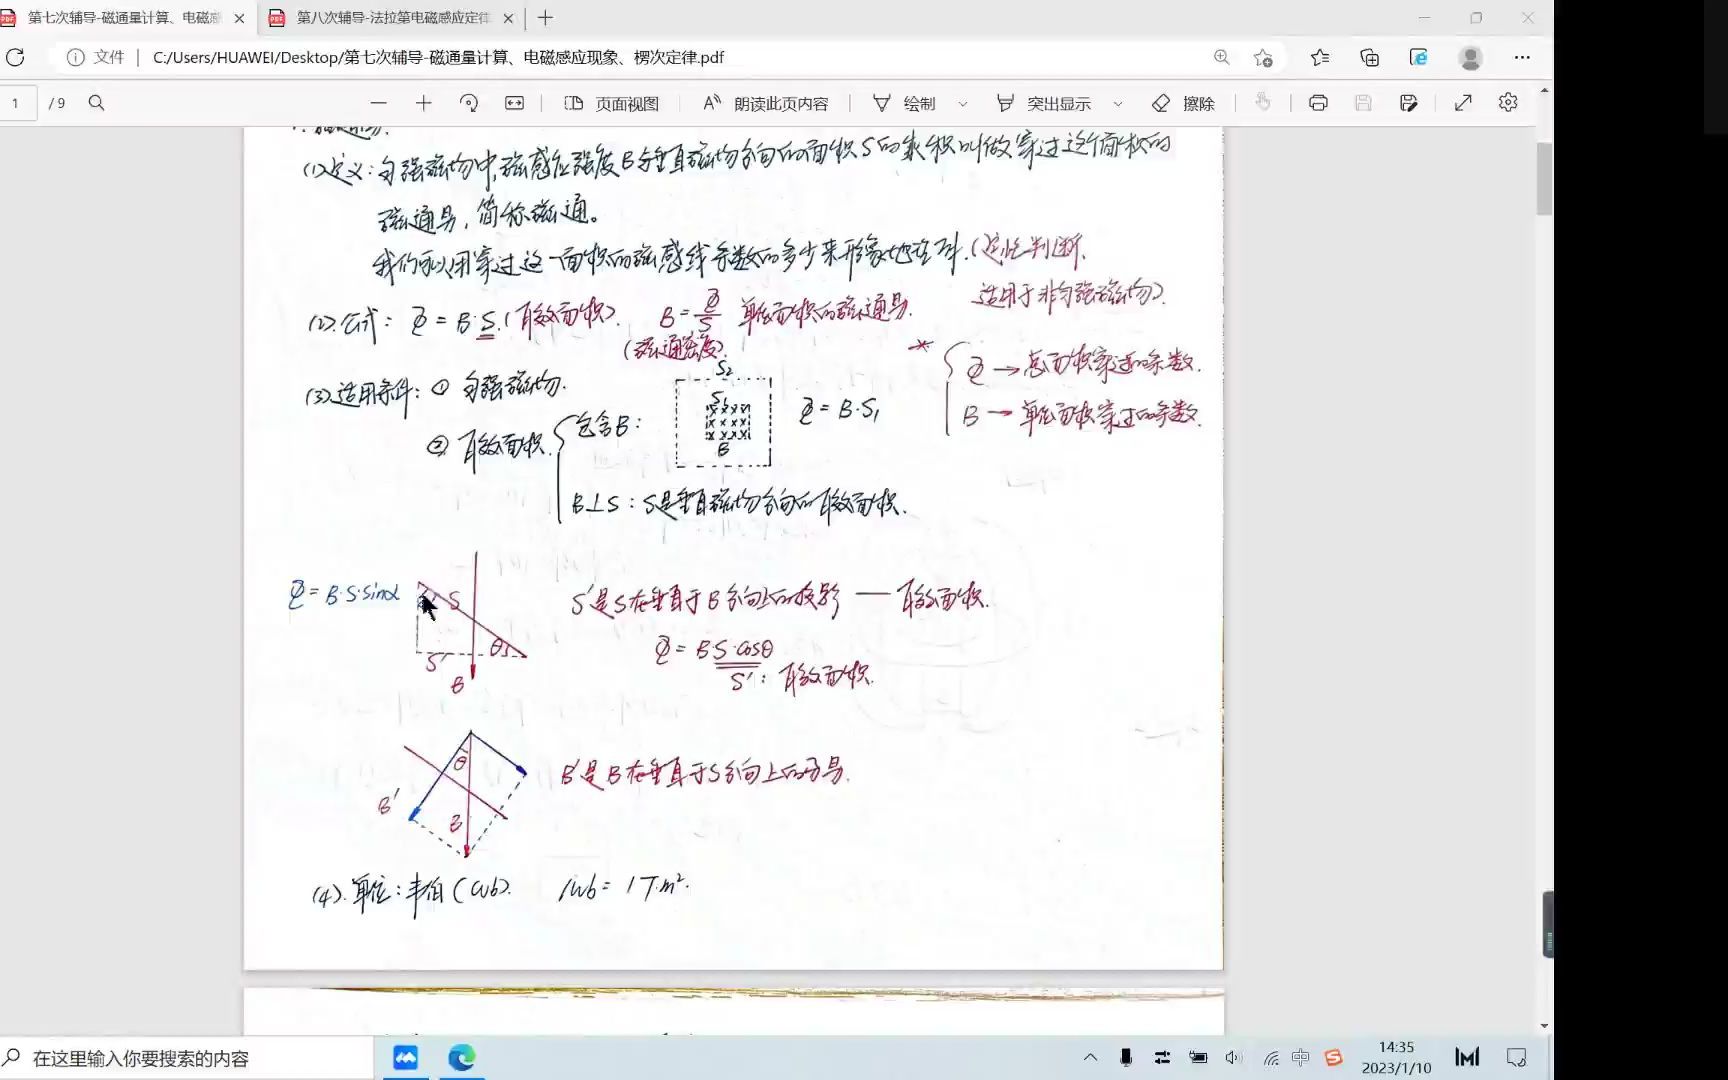 第七次辅导-磁通量计算、电磁感
第八次辅导-法拉第电磁感应定律
文件 C:/Users/HUAWEI/Desktop/第七次辅导-磁通量计算、电磁感应现象、楞次定律.pdf
1 / 9 页面视图 朗读此页内容 绘制 突出显示 擦除
(1)定义:匀强磁场中,磁感应强度B与垂直磁场方向的面积S的乘积叫做穿过这个面积的
磁通量,简称磁通。
我们可以用穿过这一面积的磁感线条数的多少来形象地
(定性判断,
适用于非匀强磁场).
(2).公式: Φ = B·S.(有效面积). B = Φ/S 单位面积的磁通量.
(磁通密度).
* Φ → 总面积穿过的条数.
B → 单位面积穿过的条数.
(3)适用条件: ① 匀强磁场.
② 有效面积.
包含B:
S₂
S₁
B
Φ = B·S₁
B⊥S : S是垂直磁场方向的有效面积.
Φ = B·S·sinα
S
θ
S'
B
S'是S在垂直于B方向上的投影 — 有效面积.
Φ = B·S·cosθ
S': 有效面积.
θ
B'
B
B'是B在垂直于S方向上的分量.
(4).单位:韦伯(Wb). 1Wb = 1T·m².
在这里输入你要搜索的内容
中
14:35
2023/1/10